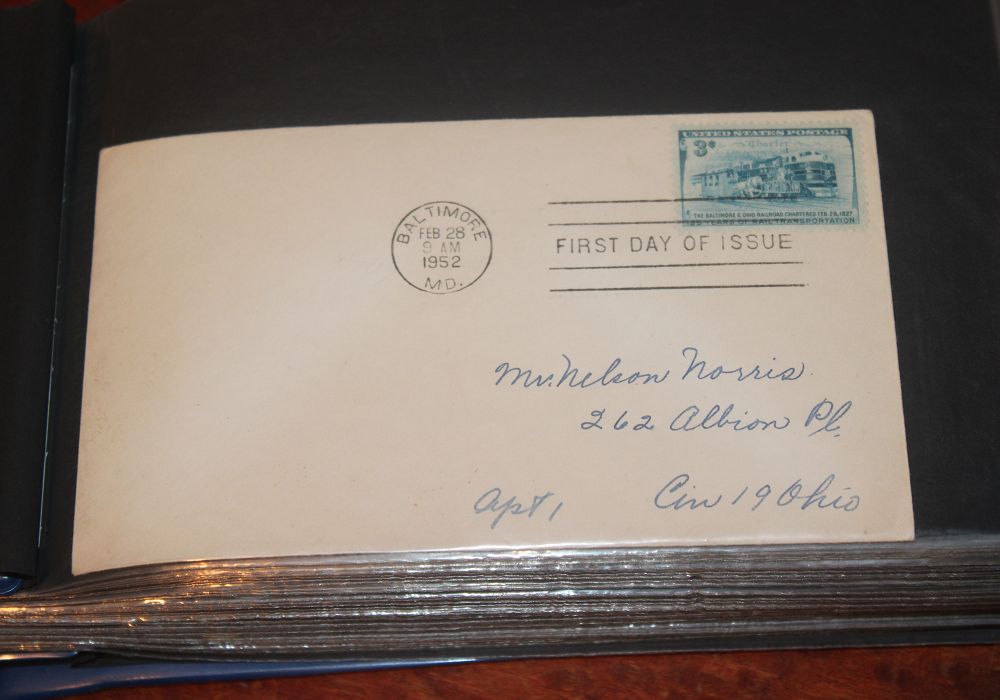 UNITED STATES POSTAGE
3¢
Charter
THE BALTIMORE & OHIO RAILROAD CHARTERED FEB. 28, 1827
125 YEARS OF RAIL TRANSPORTATION
BALTIMORE
FEB 28
9 AM
1952
MD.
FIRST DAY OF ISSUE
Mr. Nelson Norris
262 Albion Pl.
Apt 1
Cin 19 Ohio